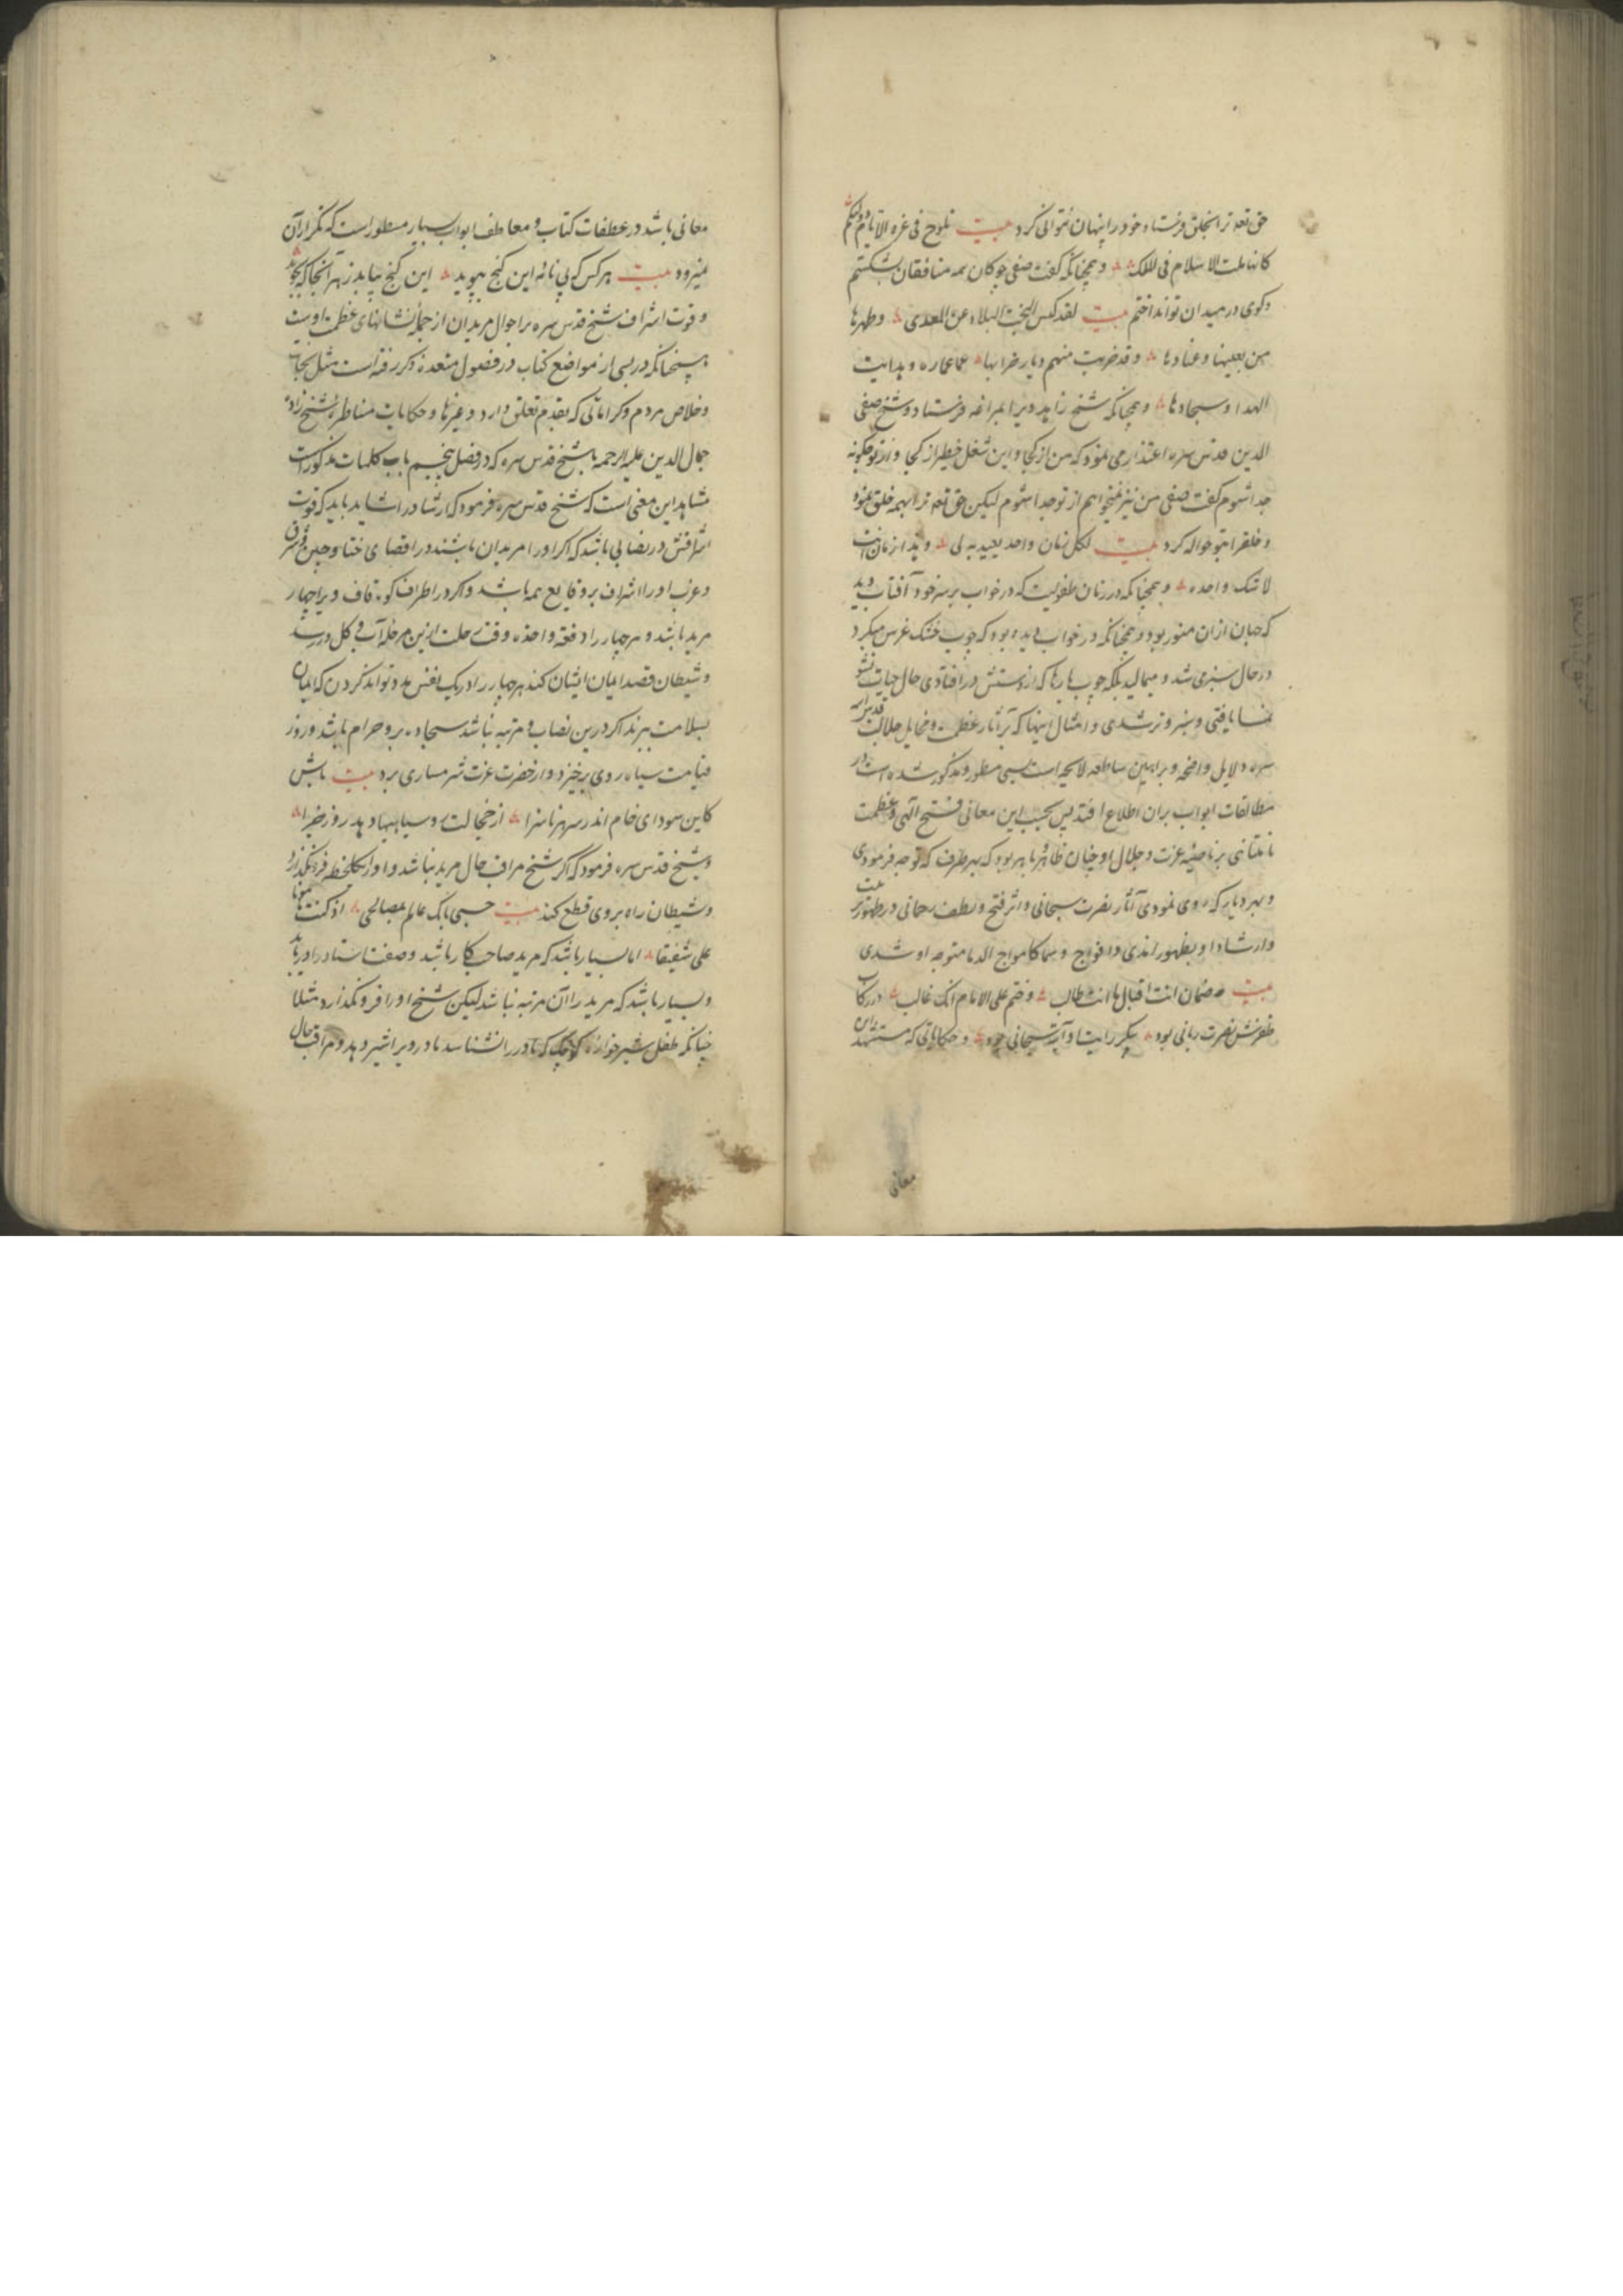 حق تعه ترا بخلق فرستاد خود را پنهان نتوانی کرد بیت تلوح فی غره الایام دولتکم
کانها ملت الاسلام فی الملک و همچنانکه گفت صفی چوکان همه منافقان بشکستم
و کوی در میدان تو انداختم بیت لقد البلاء عن المعدی و طهرها
من بغیها و عنادها و قد خربت منهم دیار خرابها عماره و بدایت
الهدا و سجادها و همچنانکه شیخ زاهد ویرا بمراغه فرستاد و شیخ صفی
الدین قدس سره اعتذار می نمود که من از کجا و این شغل خطیر از کجا و از تو چکونه
جدا شوم گفت صفی من نیز نمیخواهم از تو جدا شوم لیکن حق تعه ترا بهمه خلق نمود
و خلقرا بتو حواله کرد بیت لکل زمان واحد یقتدی به و هذا زمان انت
لا شک واحده و همچنانکه در زمان طفولیت که در خواب بر سر خود آفتاب دید
که جهان ازان منور بود و همچنانکه در خواب دیده بود که چوب خشک غرس میکرد
در حال سبز می شد و میبالید بلکه چوب پارها که از دستش در افتادی حال حیات نشو
نما یافتی و سبز و تر شدی و امثال اینها که بر آثار عظمت و مخایل جلالت قدس
سره دلایل واضحه و براهین ساطعه لایحه است بسی مسطور و مذکور شده است در
مطالعات ابواب بران اطلاع افتد پس بحسب این معانی فتح الهی و عظمت
نامتناهی بر ناصیه عزت و جلال او چنان ظاهر باهر بود که بهر طرف که توجه فرمودی
و بهر دیار که روی نمودی آثار نصرت سبحانی و اثر فتح و لطف رحمانی در ظهور
و ارشاد او بظهور اندی و افواج متوجه او شدی
بیت ضمان انت اقبال ما انت طالب و ختم علی الایام انک غالب در رکاب
ظفرش نصرت ربانی بود پیکر رایت او آیت سبحانی بود و حکایاتی که مستشهد این
معانی
معانی باشد در عطفات کتاب و معاطف ابواب بسیار مسطور است که تکرار آن
نمیرود بیت هر کس که پی نانه این کنج بپوید این کنج بیابد زهر آنجا که بجوید
و قوت اشراف شیخ قدس سره بر احوال مریدان از جمله نشانهای عظمت اوست
همچنانکه در بسی از مواضع کتاب در فصول متعدده ذکر رفته است مثل نجات
و خلاص مردم و کراماتی که بقدم تعلق دارد و غیرها و حکایات مناظره شیخ زاده
جمال الدین علیه الرحمه با شیخ قدس سره که در فصل پنجم باب کلمات مذکور است
مشاهد این معنی است که شیخ قدس سره فرمود که ارشاد را شاید باید که قوت
اشرافش در نصابی باشد که اکر او را مریدان باشند در اقصای ختا و چین و شرق
و غرب او را اشراف بر وقایع همه باشد و اکر در اطراف کوه قاف ویرا چهار
مرید باشد و هر چهار را دفعة واحده وقت رحلت ازین مرحله آب و کل در رسد
و شیطان قصد ایمان ایشان کند هر چهار را در یک نفس مدد تواند کردن که ایمان
بسلامت ببرند اکر درین نصاب و مرتبه نباشد سجاده برو حرام باشد و روز
قیامت سیاه روی برخیزد و از حضرت عزت شرمساری برد بیت باش
کاین سودای خام اندر سر هر ناسزا از خجالت روسیاهیها دهد روز جزا
و شیخ قدس سره فرمود که اگر شیخ مراقب حال مرید نباشد و او را یکلحظه فرو گذارد
و شیطان راه بر وی قطع کند بیت حسبی بانک عالم بمصالحی اذ کنت مؤتمنا
علی شفیقا اما بسیار باشد که مرید صاحب کار باشد و صفت استاد را دریابد
و بسیار باشد که مرید را آن مرتبه نباشد لیکن شیخ او را فرو نکذارد مثلا
چنانکه طفل شیرخواره کوچک که مادر را نشناسد مادر ویرا شیر دهد و مراقب حال